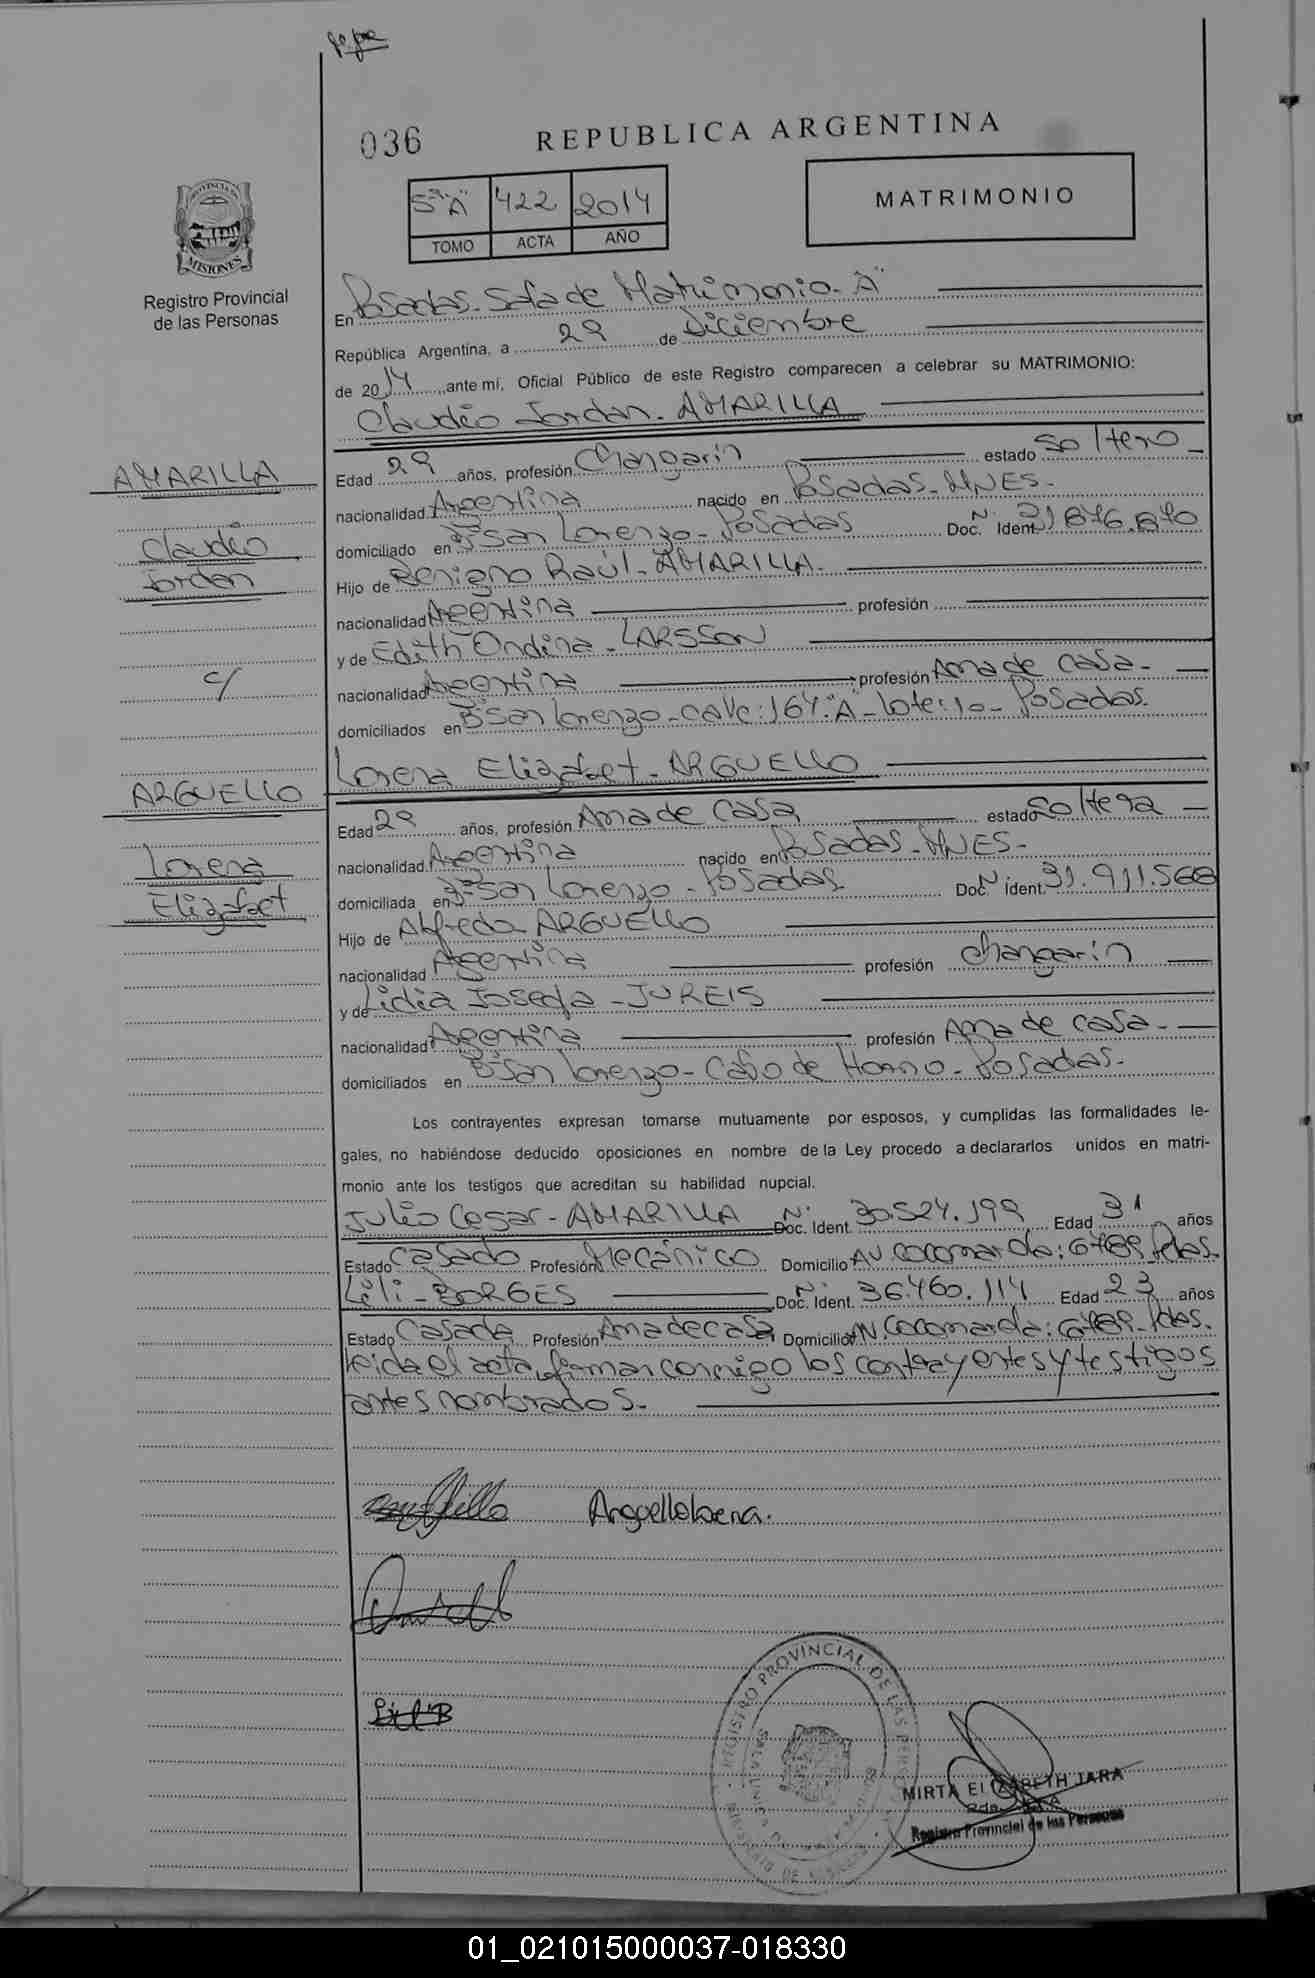 036
REPUBLICA ARGENTINA
5º"A" 422 2014
TOMO ACTA AÑO
MATRIMONIO
PROVINCIA DE
MISIONES
Registro Provincial
de las Personas
En Posadas-Sala de Matrimonio-"A"
República Argentina, a 29 de Diciembre
de 2014, ante mí, Oficial Público de este Registro comparecen a celebrar su MATRIMONIO:
Claudio Jordan-AMARILLA
AMARILLA
Claudio
Jordan
c/
ARGUELLO
Lorena
Elizabet
Edad 29 años, profesión Changarín estado Soltero
nacionalidad Argentina nacido en Posadas-MNES-
domiciliado en Bº San Lorenzo-Posadas Doc. Ident. Nº
Hijo de Benigno Raúl-AMARILLA-
nacionalidad Argentina profesión
y de Edith Ondina-LARSSON
nacionalidad Argentina profesión Ama de casa-
domiciliados en Bº San Lorenzo-calle:164"A"-lote:10-Posadas.
Lorena Elizabet-ARGUELLO
Edad 29 años, profesión Ama de casa estado Soltera
nacionalidad Argentina nacido en Posadas-MNES-
domiciliada en Bº San Lorenzo-Posadas Doc. Ident. Nº 31.911.568
Hijo de Alfredo ARGUELLO
nacionalidad Argentina profesión Changarín
y de Lidia Josefa-JUREIS
nacionalidad Argentina profesión Ama de casa-
domiciliados en Bº San Lorenzo-Cabo de Horno-Posadas-
Los contrayentes expresan tomarse mutuamente por esposos, y cumplidas las formalidades le-
gales, no habiéndose deducido oposiciones en nombre de la Ley procedo a declararlos unidos en matri-
monio ante los testigos que acreditan su habilidad nupcial.
Julio Cesar-AMARILLA Doc. Ident. Nº 30.524.199 Edad 31 años
Estado Casado Profesión Mecánico Domicilio Av Cocomarola: Pdas.
Lili-BORGES Doc. Ident. Nº 36.460.114 Edad 23 años
Estado Casada Profesión Ama de casa Domicilio Av. Cocomarola: Pdas.
leida el acta, firman conmigo los contrayentes y testigos
antes nombrados.
Arguello Lorena.
Lili B
REGISTRO PROVINCIAL DE LAS PERSONAS
MIRTA ELIZABETH JARA
Registro Provincial de las Personas
01_021015000037-018330